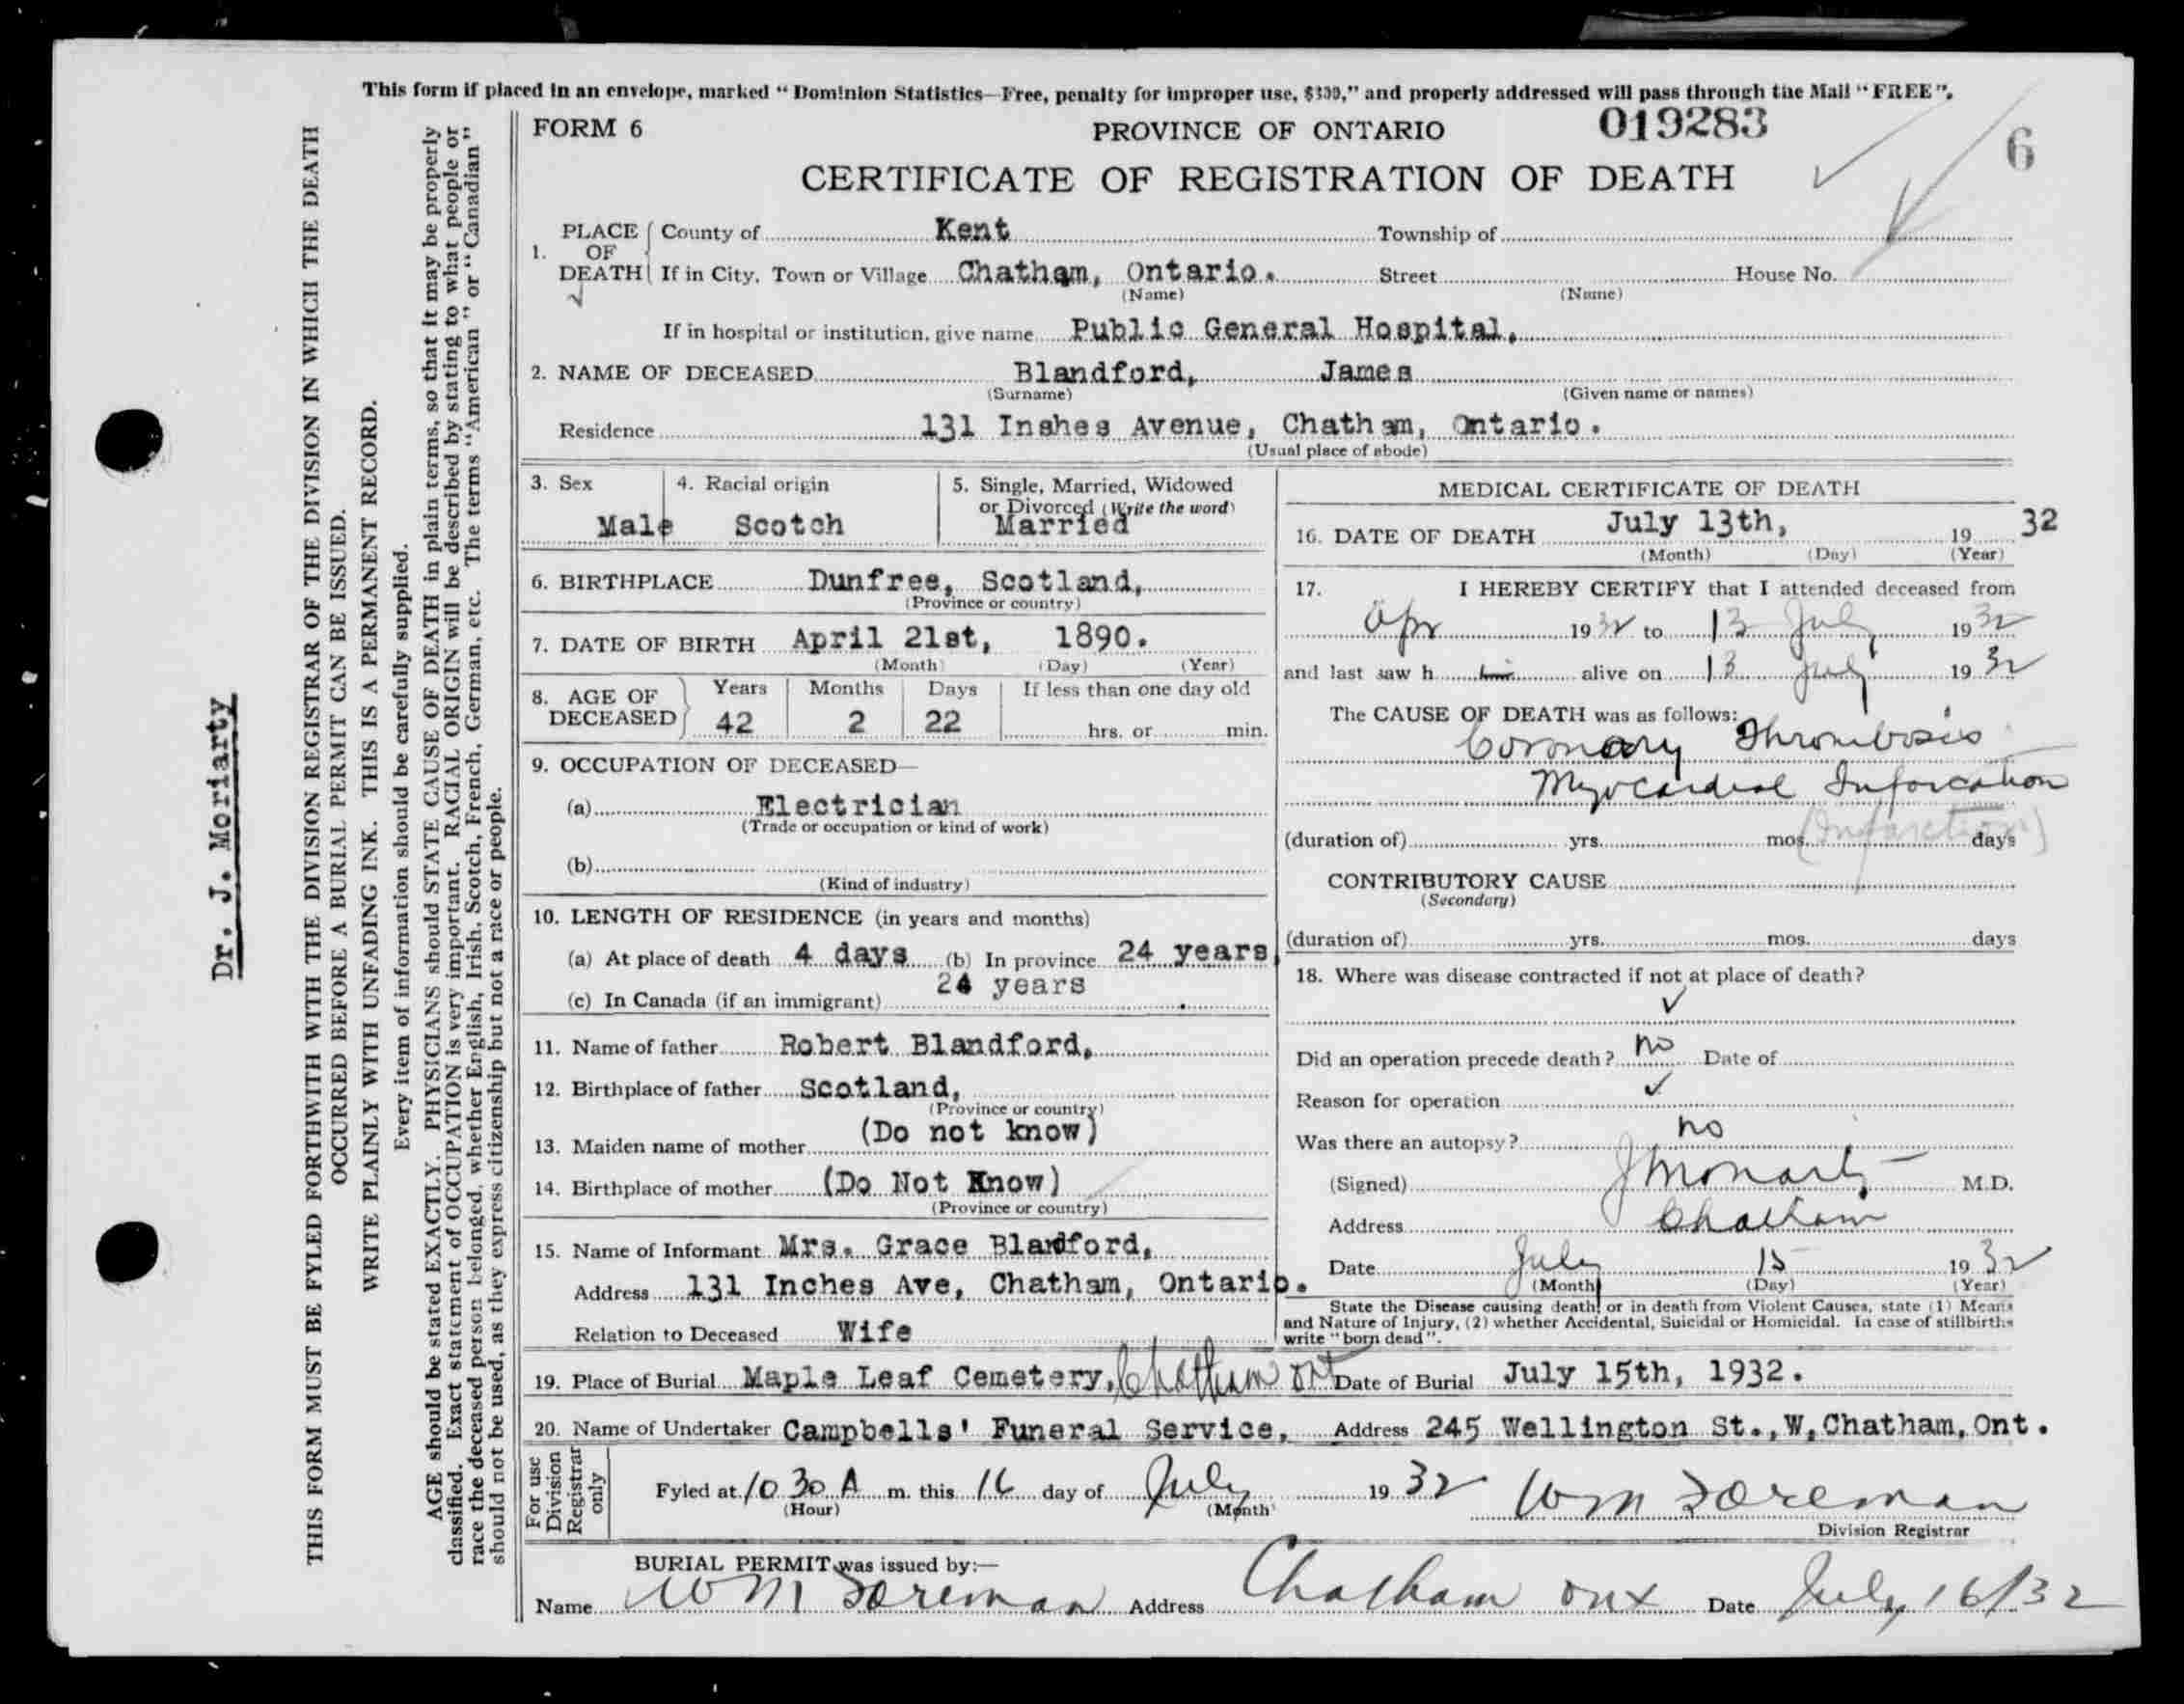 This form if placed in an envelope, marked “Dominion Statistics—Free, penalty for improper use, $300,” and properly addressed will pass through the Mail “FREE”.
FORM 6 PROVINCE OF ONTARIO 019283 6
CERTIFICATE OF REGISTRATION OF DEATH
1. PLACE OF DEATH County of Kent Township of
If in City, Town or Village Chatham, Ontario. Street House No.
(Name) (Name)
If in hospital or institution, give name Public General Hospital,
2. NAME OF DECEASED Blandford, James
(Surname) (Given name or names)
Residence 131 Inshes Avenue, Chatham, Ontario.
(Usual place of abode)
3. Sex Male
4. Racial origin Scotch
5. Single, Married, Widowed
or Divorced (Write the word)
Married
6. BIRTHPLACE Dunfree, Scotland,
(Province or country)
7. DATE OF BIRTH April 21st, 1890.
(Month) (Day) (Year)
8. AGE OF DECEASED Years Months Days If less than one day old
42 2 22 hrs. or min.
9. OCCUPATION OF DECEASED—
(a) Electrician
(Trade or occupation or kind of work)
(b)
(Kind of industry)
10. LENGTH OF RESIDENCE (in years and months)
(a) At place of death 4 days (b) In province 24 years
(c) In Canada (if an immigrant) 24 years
11. Name of father Robert Blandford,
12. Birthplace of father Scotland,
(Province or country)
13. Maiden name of mother (Do not know)
14. Birthplace of mother (Do Not Know)
(Province or country)
15. Name of Informant Mrs. Grace Blandford,
Address 131 Inches Ave, Chatham, Ontario.
Relation to Deceased Wife
MEDICAL CERTIFICATE OF DEATH
16. DATE OF DEATH July 13th, 19 32
(Month) (Day) (Year)
17. I HEREBY CERTIFY that I attended deceased from
Apr 1932 to 13 July 1932
and last saw h him alive on 13 July 1932
The CAUSE OF DEATH was as follows:
Coronary Thrombosis
Myocardial Inforcation
(Infarction)
(duration of) yrs. mos. days
CONTRIBUTORY CAUSE
(Secondary)
(duration of) yrs. mos. days
18. Where was disease contracted if not at place of death?
✓
Did an operation precede death? no Date of
Reason for operation ✓
Was there an autopsy? no
(Signed) J Moriarty M.D.
Address Chatham
Date July 15 1932
(Month) (Day) (Year)
State the Disease causing death, or in death from Violent Causes, state (1) Means
and Nature of Injury, (2) whether Accidental, Suicidal or Homicidal. In case of stillbirths
write “born dead”.
19. Place of Burial Maple Leaf Cemetery, Chatham Ont Date of Burial July 15th, 1932.
20. Name of Undertaker Campbells' Funeral Service, Address 245 Wellington St., W, Chatham, Ont.
For use Division Registrar only
Fyled at 10 30 A m. this 16 day of July 1932 Wm Foreman
(Hour) (Month) Division Registrar
BURIAL PERMIT was issued by:—
Name Wm Foreman Address Chatham Ont Date July 16/32
Dr. J. Moriarty
THIS FORM MUST BE FYLED FORTHWITH WITH THE DIVISION REGISTRAR OF THE DIVISION IN WHICH THE DEATH
OCCURRED BEFORE A BURIAL PERMIT CAN BE ISSUED.
WRITE PLAINLY WITH UNFADING INK. THIS IS A PERMANENT RECORD.
Every item of information should be carefully supplied.
AGE should be stated EXACTLY. PHYSICIANS should STATE CAUSE OF DEATH in plain terms, so that it may be properly
classified. Exact statement of OCCUPATION is very important. RACIAL ORIGIN will be described by stating to what people or
race the deceased person belonged, whether English, Irish, Scotch, French, German, etc. The terms “American” or “Canadian”
should not be used, as they express citizenship but not a race or people.